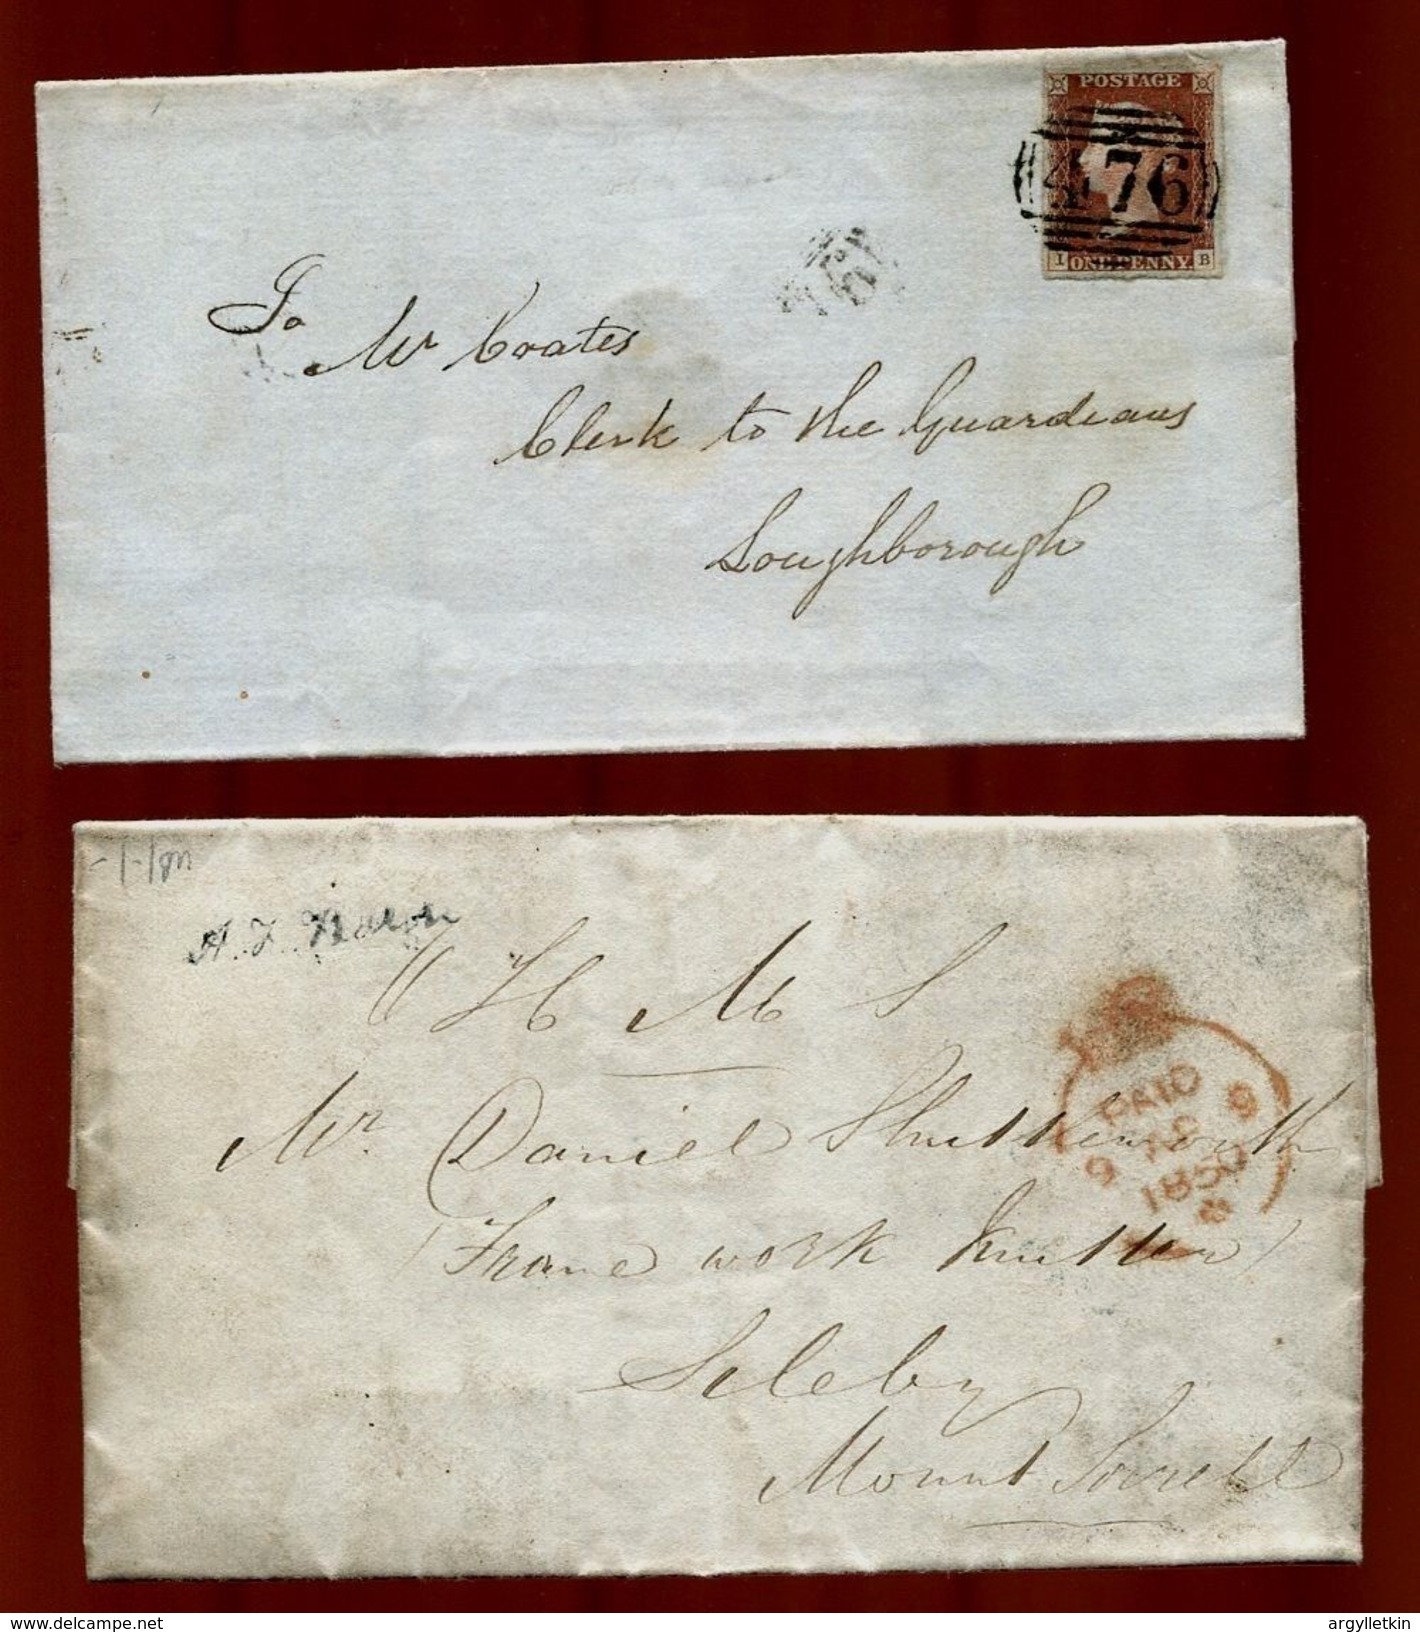 POSTAGE
476
I ONE PENNY. B
To
Mr Coates
Clerk to the Guardians
Loughborough
H M S
PAID
9 9
1850
Mr Daniel Shuttleworth
Frame work knitter
Sileby
Mount Sorrell
www.delcampe.net
argylletkin